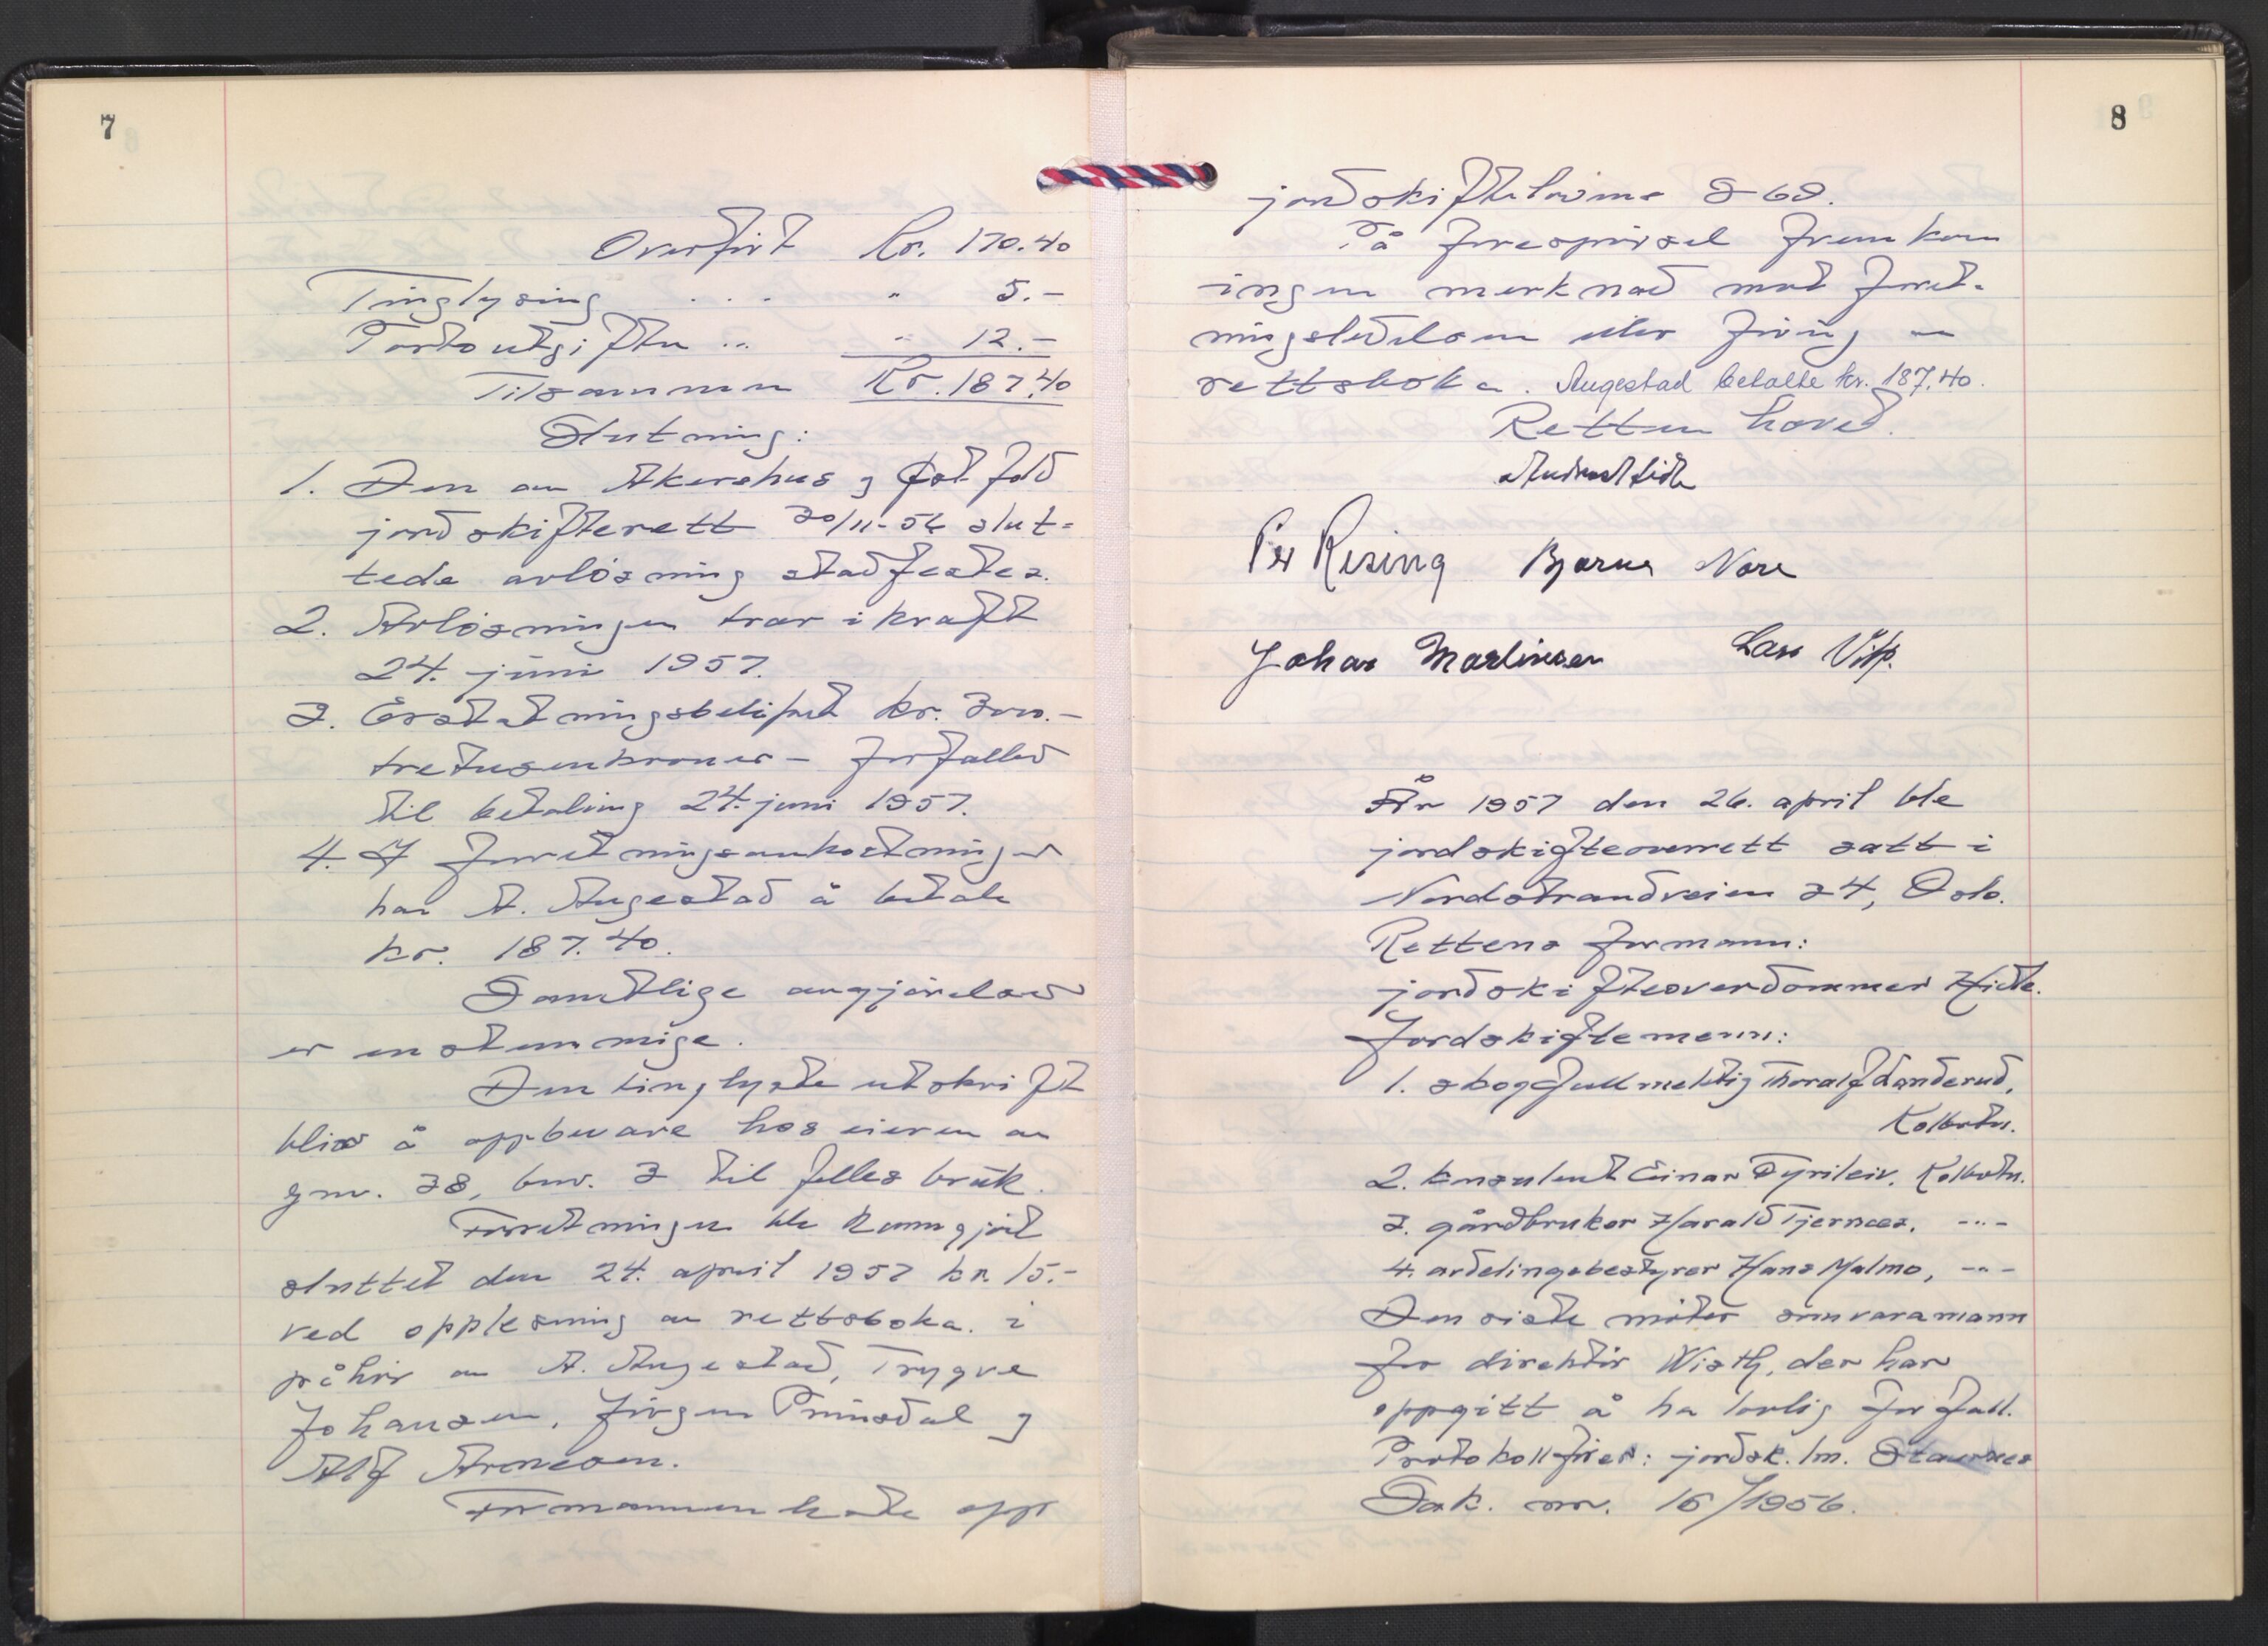 7
Overført Kr. 170.40
Tinglysing . . . " 5.-
Portoutgifter .. " 12.-
Tilsammen Kr. 187.40
Slutning:
1. Den av Akershus og Østfold
jordskifterett 30/11-56 slut-
tede avløsning stadfestes.
2. Avløsningen trær i kraft
24. juni 1957.
3. Erstatningsbeløpet kr. 3000.-
tretusenkroner - forfaller
til betaling 24. juni 1957.
4. I forretningsomkostninger
har A. Augestad å betale
kr. 187.40.
Samtlige avgjørelser
er enstemmige.
Den tinglyste utskrift
blir å oppbevare hos eieren av
gnr. 38, bnr. 3 til felles bruk.
Forretningen ble kunngjort
sluttet den 24. april 1957 kr. 15.-
ved opplesning av rettsboka i
påhør av A. Augestad, Trygve
Johansen, Jørgen Prinsdal og
Alf Arnesen.
Formannen leste opp
8
jordskiftelovens § 68.
På forespørsel fremkom
ingen merknad mot forret-
ningsledelsen eller føring av
rettsboka. Augestad betalte kr. 187.40.
Retten hevet.
Per Rising Bjarne Nore
Johan Martinsen Lars
År 1957 den 26. april ble
jordskifteoverrett satt i
Nordstrandveien 34, Oslo.
Rettens formann:
jordskifteoverdommer Hide.
Jordskiftemenn:
1. skogfullmektig Thoralf Sanderud,
Kolbotn.
2. konsulent Einar Tyrileiv. Kolbotn.
3. gårdbruker Harald Tjernæs. -"-
4. avdelingsbestyrer Hans Malmo, -"-
Den siste møter som varamann
for direktør Wisth, der har
oppgitt å ha lovlig forfall.
Protokollfører: jordsk. lm. Stavnes
Sak. nr. 16/1956.